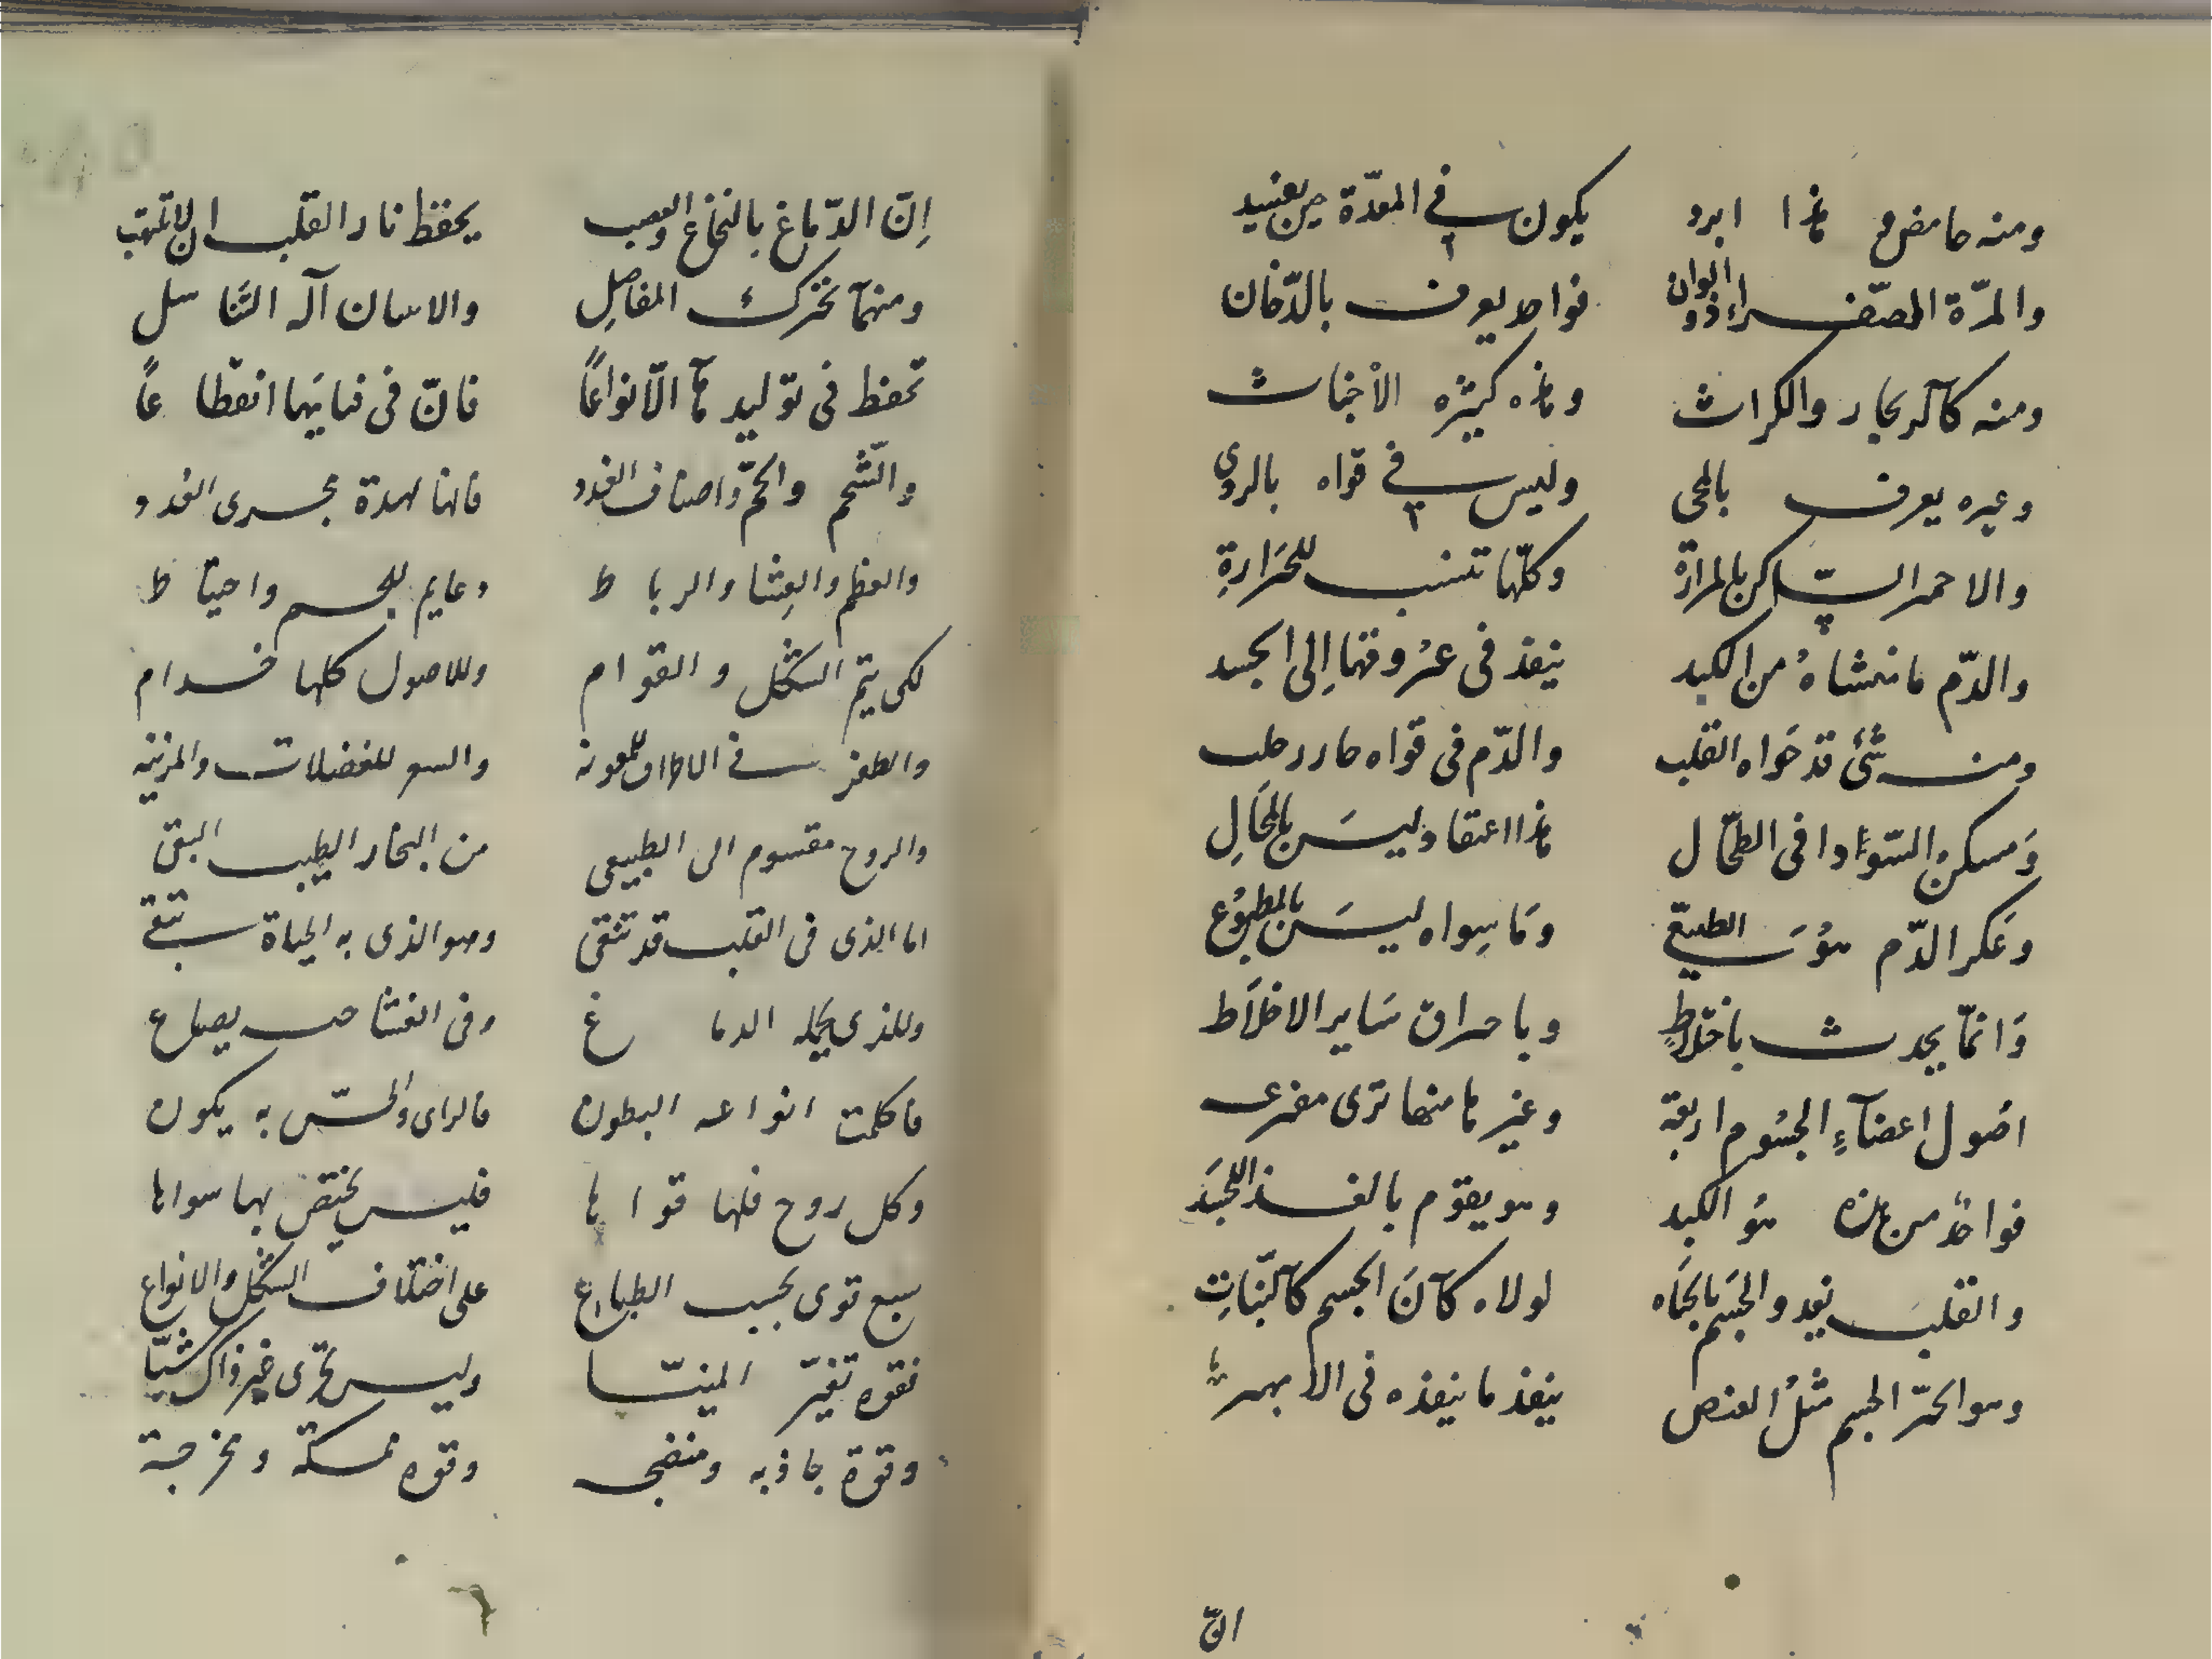 ومنه حامض و هذا ابرد يكون في المعدة حين يفسد
والمرة الصفراء ذو الوان فواحد يعرف بالدخان
ومنه كالزنجار والكراث وهذه كثيره الأخباث
وغيره يعرف بالمحي وليس في قواه بالردي
والاحمر الساكن بالمرارة وكلها تنسب للحرارة
والدم ما منشاه من الكبد ينفذ في عروقها الى الجسد
ومنه شئ قد حواه القلب والدم في قواه حار رطب
ومسكن السوداء في الطحال هذا اعتقاد ليس بالمحال
وعكر الدم هو الطبيعي وما سواه ليس بالمطبوع
وانما يحدث باختلاط وباحراق ساير الاخلاط
اصول اعضاء الجسوم اربعة وغيرها منها ترى مفرعه
فواحد من هذه هو الكبد وهو يقوم بالغذا للجسد
والقلب يغدو الجسم بالحياه لولاه كان الجسم كالنبات
وهو لحر الجسم مثل العنصر ينفذ ما ينفذه في الابهر
ان
إن الدماغ بالنخاع والعصب يحفظ نار القلب ان لا تلتهب
ومنها تحرك المفاصل والاسان آلة التناسل
تحفظ في توليدها الانواعا فان في فنائها انقطاعا
والشحم واللحم واصناف الغدد فانها لهدة مجرى الغدد
والعظم والغشا والرباط دعايم للجسم واحتياط
لكى يتم الشكل والقوام وللاصول كلها خدام
والظفر في الاطراف للمعونه والسعر للفضلات والزينه
والروح مقسوم الى الطبيعي من البخار الطيب النقي
اما الذى في القلب قد تنقى وهو الذى به الحياة تبقى
وللذى يحمله الدماغ وفى الغشا حب يصاغ
فاكلمت انواعه البطون فالراى والحس به يكون
وكل روح فلها قواها فليس يختص بها سواها
سبع قوى بحسب الطباع على اختلاف الشكل والانواع
فقوه تغير المنيا وليس تجرى غير ذاك شيا
وقوة جاذبه ومنضجه وقوه ممسكة ومخرجة